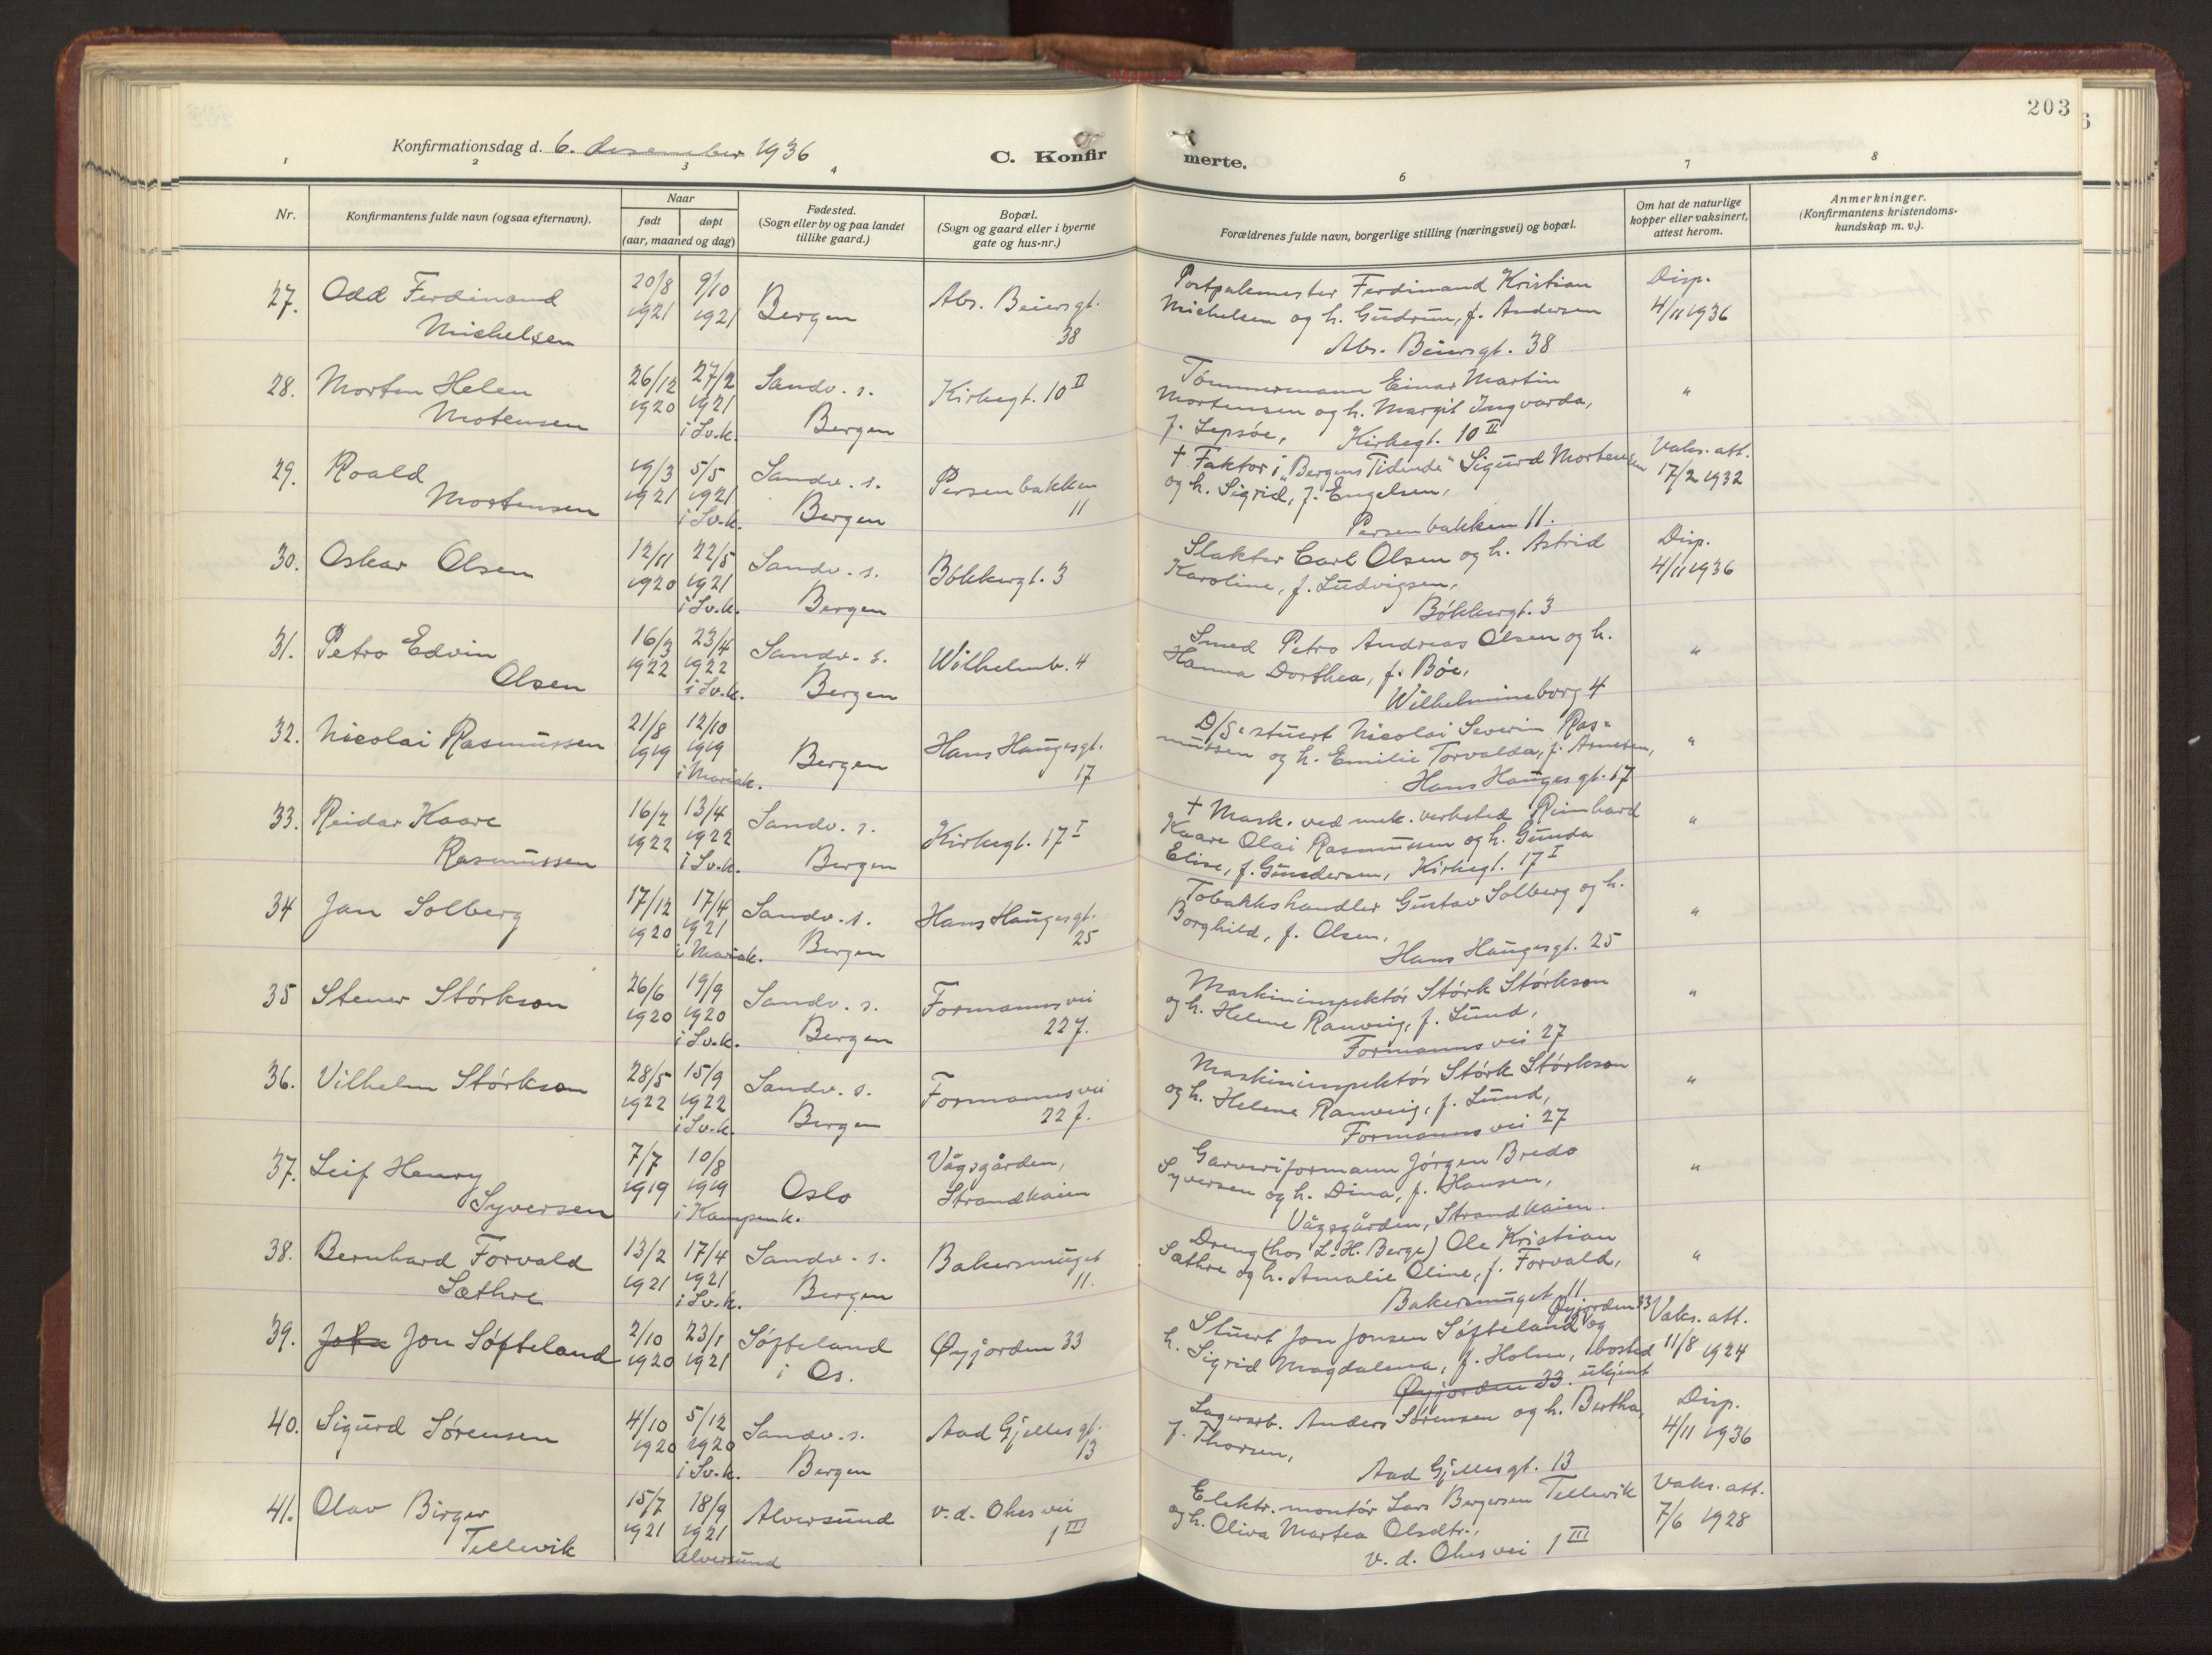 203
Konfirmationsdag d. 6. desember 1936
C. Konfir merte.
1 2 3 4 6 7 8
Nr.
Konfirmantens fulde navn (ogsaa efternavn).
Naar
født døpt
(aar, maaned og dag)
Fødested.
(Sogn eller by og paa landet
tillike gaard.)
Bopæl.
(Sogn og gaard eller i byerne
gate og hus-nr.)
Forældrenes fulde navn, borgerlige stilling (næringsvei) og bopæl.
Om hat de naturlige
kopper eller vaksinert,
attest herom.
Anmerkninger.
(Konfirmantens kristendoms-
kundskap m. v.).
27. Odd Ferdinand 20/8 9/10 Abs. Beiersgt. Postpakmester Ferdinand Kristian Disp.
Michelsen 1921 1921 Bergen 38 Michelsen og h. Gudrun, f. Andersen 4/11 1936
Abs. Beiersgt. 38
28. Morten Helen 26/12 27/2 Sandv. s. Kirkegt. 10 II Tømmermann Einar Martin "
Motensen 1920 1921 Bergen Mortensen og h. Margit Ingvarda,
i Sv.k. f. Lepsøe, Kirkegt. 10 II
29. Roald 19/3 5/5 Sandv. s. Persenbakken † Faktor i "Bergens Tidende" Sigurd Mortensen Vaks. att.
Mortensen 1921 1921 Bergen 11 og h. Sigrid, f. Engelsen, 17/2 1932
i Sv.k. Persenbakken 11.
30. Oskar Olsen 12/11 22/5 Sandv. s. Bøkkergt. 3 Slakter Carl Olsen og h. Astrid Disp.
1920 1921 Bergen Karoline, f. Ludvigsen, 4/11 1936
i Sv.k. Bøkkergt. 3
31. Petro Edvin 16/3 23/4 Sandv. s. Wilhelmb. 4 Smed Petro Andreas Olsen og h. "
Olsen 1922 1922 Bergen Hanna Dorthea, f. Bøe,
i Sv.k. Wilhelmineborg 4
32. Nicolai Rasmussen 21/8 12/10 Hans Haugesgt. D/S: stuert Nicolai Severin Ras= "
1919 1919 Bergen 17 mussen og h. Emilie Torvalda, f. Arnesen,
i Mariak. Hans Hauges gt. 17
33. Reidar Kaare 16/2 13/4 Sandv. s. Kirkegt. 17 I † Mask. ved mek. verksted Reinhard "
Rasmussen 1922 1922 Bergen Kaare Olai Rasmussen og h. Gunda
i Sv.k. Elise, f. Gundersen, Kirkegt. 17 I
34 Jan Solberg 17/12 17/4 Sandv. s. Hans Haugesgt. Tobakkshandler Gustav Solberg og h. "
1920 1921 Bergen 25 Borghild, f. Olsen,
i Mariak. Hans Haugesgt. 25
35 Stener Størkson 26/6 19/9 Sandv. s. Formanns vei Maskininspektør Størk Størkson "
1920 1920 Bergen 27. og h. Helene Ranveig, f. Lund,
i Sv.k. Formanns vei 27
36. Vilhelm Størkson 28/5 15/9 Sandv. s. Formanns vei Maskininspektør Størk Størkson "
1922 1922 Bergen 27. og h. Helene Ranveig, f. Lund,
i Sv.k. Formanns vei 27
37. Leif Henry 7/7 10/8 Vågsgården, Garveriformann Jørgen Bredo "
Syversen 1919 1919 Oslo Strandkaien Syversen og h. Dina, f. Hansen,
i Kampenk. Vågsgården, Strandkaien.
38. Bernhard Torvald 13/2 17/4 Sandv. s. Bakersmuget Dreng (hos L. H. Berge) Ole Kristian "
Sæthre 1921 1921 Bergen 11. Sæthre og h. Amalie Oline, f. Torvald,
i Sv.k. Bakersmuget 11
39. Jon Søfteland 2/10 23/1 Søfteland Øyjorden 33 Stuert Jon Jonsen Søfteland Øyjorden 33 og Vaks. att.
1920 1921 i Os. h. Sigrid Magdalena, f. Holm, bosted 11/8 1924
Øyjorden 33. ukjent
40. Sigurd Sørensen 4/10 5/12 Sandv. s. Aad Gjelles gt. Lagerarb. Anders Sørensen og h. Bertha, Disp.
1920 1920 Bergen 13 f. Thorsen, 4/11 1936
i Sv.k. Aad Gjelles gt. 13
41. Olav Birger 15/7 18/9 Alversund v. d. Ohes vei Elektr. montør Lars Bergersen Tellevik Vaks. att.
Tellevik 1921 1921 1 III og h. Oliva Martea Olsdtr., 7/6 1928
Alversund v. d. Ohes vei 1 III